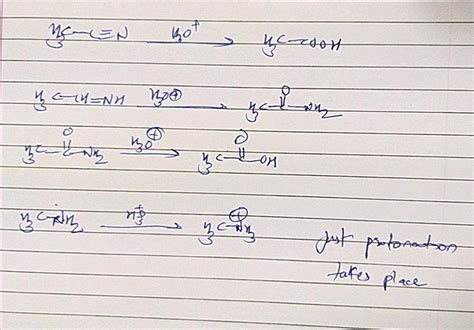 H₃C-C≡N H₃O⁺ → H₃C-COOH
H₃C-CH=NH H₃O⊕ → H₃C-C(=O)-NH₂
H₃C-C(=O)-NH₂ H₃O⊕ → H₃C-C(=O)-OH
H₃C-N̈H₂ → H₃C-N⊕H₃ Just protonation
takes place